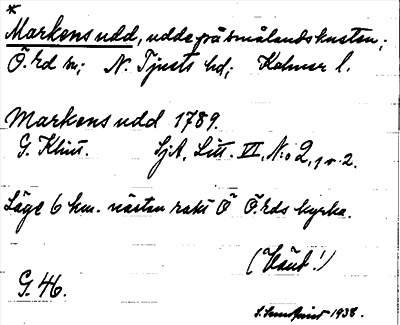 *
Markens udd, udde på småladskusten;
Ö. Ed sn; N. Tjusts hd; Kalmar l.
Markens udd 1789.
G. Klint. SjA, Litt. VI, N:o 2, 1 v. 2.
Läge 6 km. nästan rakt Ö Ö. Eds kyrka.
G. 46.
1938.